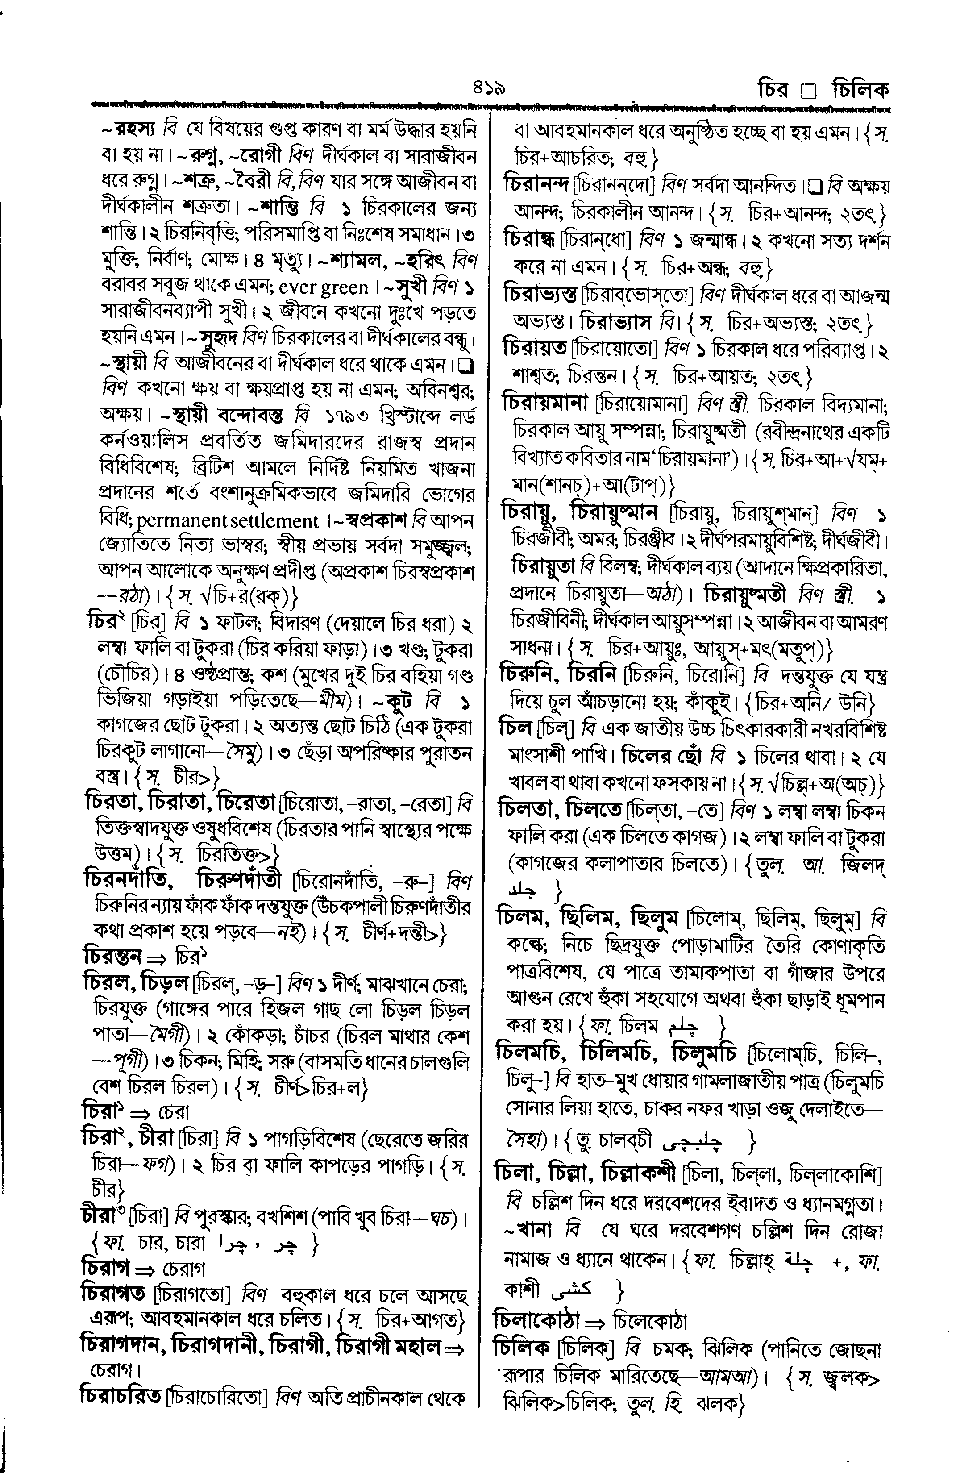 ৪১৯
চির □ চিলিক
~রহস্য বি যে বিষয়ের গুপ্ত কারণ বা মর্ম উদ্ধার হয়নি
বা হয় না। ~রুগ্ন, ~রোগী বিণ দীর্ঘকাল বা সারাজীবন
ধরে রুগ্ন। ~শত্রু, ~বৈরী বি,বিণ যার সঙ্গে আজীবন বা
দীর্ঘকালীন শত্রুতা। ~শান্তি বি ১ চিরকালের জন্য
শান্তি। ২ চিরনিবৃত্তি; পরিসমাপ্তি বা নিঃশেষ সমাধান। ৩
মুক্তি; নির্বাণ; মোক্ষ। ৪ মৃত্যু। ~শ্যামল, ~হরিৎ বিণ
বরাবর সবুজ থাকে এমন; ever green। ~সুখী বিণ ১
সারাজীবনব্যাপী সুখী। ২ জীবনে কখনো দুঃখে পড়তে
হয়নি এমন। ~সুহৃদ বিণ চিরকালের বা দীর্ঘকালের বন্ধু।
~স্থায়ী বি আজীবনের বা দীর্ঘকাল ধরে থাকে এমন। □
বিণ কখনো ক্ষয় বা ক্ষয়প্রাপ্ত হয় না এমন; অবিনশ্বর;
অক্ষয়। ~স্থায়ী বন্দোবস্ত বি ১৭৯৩ খ্রিস্টাব্দে লর্ড
কর্নওয়ালিস প্রবর্তিত জমিদারদের রাজস্ব প্রদান
বিধিবিশেষ; ব্রিটিশ আমলে নির্দিষ্ট নিয়মিত খাজনা
প্রদানের শর্তে বংশানুক্রমিকভাবে জমিদারি ভোগের
বিধি; permanent settlement। ~স্বপ্রকাশ বি আপন
জ্যোতিতে নিত্য ভাস্বর; স্বীয় প্রভায় সর্বদা সমুজ্জ্বল;
আপন আলোকে অনুক্ষণ প্রদীপ্ত (অপ্রকাশ চিরস্বপ্রকাশ
--রঠা)। {স. √চি+র(রক্)}
চির² [চির্] বি ১ ফাটল; বিদারণ (দেয়ালে চির ধরা) ২
লম্বা ফালি বা টুকরা (চির করিয়া ফাড়া)। ৩ খণ্ড; টুকরা
(চৌচির)। ৪ ওষ্ঠপ্রান্ত; কশ (মুখের দুই চির বহিয়া গণ্ড
ভিজিয়া গড়াইয়া পড়িতেছে—মীম)। ~কুট বি ১
কাগজের ছোট টুকরা। ২ অত্যন্ত ছোট চিঠি (এক টুকরা
চিরকুট লাগানো—সৈমু)। ৩ ছেঁড়া অপরিষ্কার পুরাতন
বস্ত্র। {স. চীর>}
চিরতা, চিরাতা, চিরেতা [চিরোতা, –রাতা, –রেতা] বি
তিক্তস্বাদযুক্ত ওষুধবিশেষ (চিরতার পানি স্বাস্থ্যের পক্ষে
উত্তম)। {স. চিরতিক্ত>}
চিরনদাঁতি, চিরুণদাঁতী [চিরোনদাঁতি, –রু–] বিণ
চিরুনির ন্যায় ফাঁক ফাঁক দন্তযুক্ত (উঁচকপালী চিরুণদাঁতীর
কথা প্রকাশ হয়ে পড়বে—নই)। {স. চীর্ণ+দন্তী>}
চিরন্তন ⇒ চির¹
চিরল, চিড়ল [চিরল্, –ড়–] বিণ ১ দীর্ণ; মাঝখানে চেরা;
চিরযুক্ত (গাঙ্গের পারে হিজল গাছ লো চিড়ল চিড়ল
পাতা—মৈগী)। ২ কোঁকড়া; চাঁচর (চিরল মাথার কেশ
—পূগী)। ৩ চিকন; মিহি; সরু (বাসমতি ধানের চালগুলি
বেশ চিরল চিরল)। {স. চীর্ণ>চির+ল}
চিরা¹ ⇒ চেরা
চিরা², চীরা [চিরা] বি ১ পাগড়িবিশেষ (ছেরেতে জরির
চিরা—ফগ)। ২ চির বা ফালি কাপড়ের পাগড়ি। {স.
চীর}
চীরা³ [চিরা] বি পুরস্কার; বখশিশ (পাবি খুব চিরা—ঘচ)।
{ফা. চার, চারা چر ، چرا }
চিরাগ ⇒ চেরাগ
চিরাগত [চিরাগতো] বিণ বহুকাল ধরে চলে আসছে
এরূপ; আবহমানকাল ধরে চলিত। {স. চির+আগত}
চিরাগদান, চিরাগদানী, চিরাগী, চিরাগী মহাল ⇒
চেরাগ।
চিরাচরিত [চিরাচোরিতো] বিণ অতি প্রাচীনকাল থেকে
বা আবহমানকাল ধরে অনুষ্ঠিত হচ্ছে বা হয় এমন। {স.
চির+আচরিত; বহু}
চিরানন্দ [চিরানন্‌দো] বিণ সর্বদা আনন্দিত। □ বি অক্ষয়
আনন্দ; চিরকালীন আনন্দ। {স. চির+আনন্দ; ২তৎ}
চিরান্ধ [চিরান্‌ধো] বিণ ১ জন্মান্ধ। ২ কখনো সত্য দর্শন
করে না এমন। {স. চির+অন্ধ; বহু}
চিরাভ্যস্ত [চিরাব্‌ভোস্‌তো] বিণ দীর্ঘকাল ধরে বা আজন্ম
অভ্যস্ত। চিরাভ্যাস বি। {স. চির+অভ্যস্ত; ২তৎ}
চিরায়ত [চিরায়োতো] বিণ ১ চিরকাল ধরে পরিব্যাপ্ত। ২
শাশ্বত; চিরন্তন। {স. চির+আয়ত; ২তৎ}
চিরায়মানা [চিরায়োমানা] বিণ স্ত্রী. চিরকাল বিদ্যমানা;
চিরকাল আয়ু সম্পন্না; চিরায়ুষ্মতী (রবীন্দ্রনাথের একটি
বিখ্যাত কবিতার নাম ‘চিরায়মানা’)। {স. চির+আ+√যম্+
মান(শানচ্)+আ(টাপ্)}
চিরায়ু, চিরায়ুষ্মান [চিরায়ু, চিরায়ুশ্‌মান] বিণ ১
চিরজীবী; অমর; চিরঞ্জীব। ২ দীর্ঘপরমায়ুবিশিষ্ট; দীর্ঘজীবী।
চিরায়ুতা বি বিলম্ব; দীর্ঘকাল ব্যয় (আদানে ক্ষিপ্রকারিতা,
প্রদানে চিরায়ুতা—অঠা)। চিরায়ুষ্মতী বিণ স্ত্রী. ১
চিরজীবিনী; দীর্ঘকাল আয়ুসম্পন্না। ২ আজীবন বা আমরণ
সাধনা। {স. চির+আয়ুঃ, আয়ুস্+মৎ(মতুপ্)}
চিরুনি, চিরনি [চিরুনি, চিরোনি] বি দন্তযুক্ত যে যন্ত্র
দিয়ে চুল আঁচড়ানো হয়; কাঁকুই। {চির+অনি/ উনি}
চিল [চিল্] বি এক জাতীয় উচ্চ চিৎকারকারী নখরবিশিষ্ট
মাংসাশী পাখি। চিলের ছোঁ বি ১ চিলের থাবা। ২ যে
খাবল বা থাবা কখনো ফসকায় না। {স. √চিল্ল+অ(অচ্)}
চিলতা, চিলতে [চিল্‌তা, –তে] বিণ ১ লম্বা লম্বা চিকন
ফালি করা (এক চিলতে কাগজ)। ২ লম্বা ফালি বা টুকরা
(কাগজের কলাপাতার চিলতে)। {তুল. আ. জিলদ্
جلد }
চিলম, ছিলিম, ছিলুম [চিলোম্, ছিলিম্, ছিলুম্] বি
কল্কে; নিচে ছিদ্রযুক্ত পোড়ামাটির তৈরি কোণাকৃতি
পাত্রবিশেষ, যে পাত্রে তামাকপাতা বা গাঁজার উপরে
আগুন রেখে হুঁকা সহযোগে অথবা হুঁকা ছাড়াই ধূমপান
করা হয়। {ফা. চিলম چلم }
চিলমচি, চিলিমচি, চিলুমচি [চিলোম্‌চি, চিলি–,
চিলু–] বি হাত-মুখ ধোয়ার গামলাজাতীয় পাত্র (চিলুমচি
সোনার লিয়া হাতে, চাকর নফর খাড়া ওজু দেলাইতে—
সৈহা)। {তু চালব্‌চী چلبچی }
চিলা, চিল্লা, চিল্লাকশী [চিলা, চিল্‌লা, চিল্‌লাকোশি]
বি চল্লিশ দিন ধরে দরবেশদের ইবাদত ও ধ্যানমগ্নতা।
~খানা বি যে ঘরে দরবেশগণ চল্লিশ দিন রোজা
নামাজ ও ধ্যানে থাকেন। {ফা. চিল্লাহ্ چلہ +, ফা.
কাশী کشی }
চিলাকোঠা ⇒ চিলেকোঠা
চিলিক [চিলিক্] বি চমক; ঝিলিক (পানিতে জোছনা
রূপার চিলিক মারিতেছে—আমআ)। {স. জ্বলক>
ঝিলিক>চিলিক; তুল. হি. ঝলক}